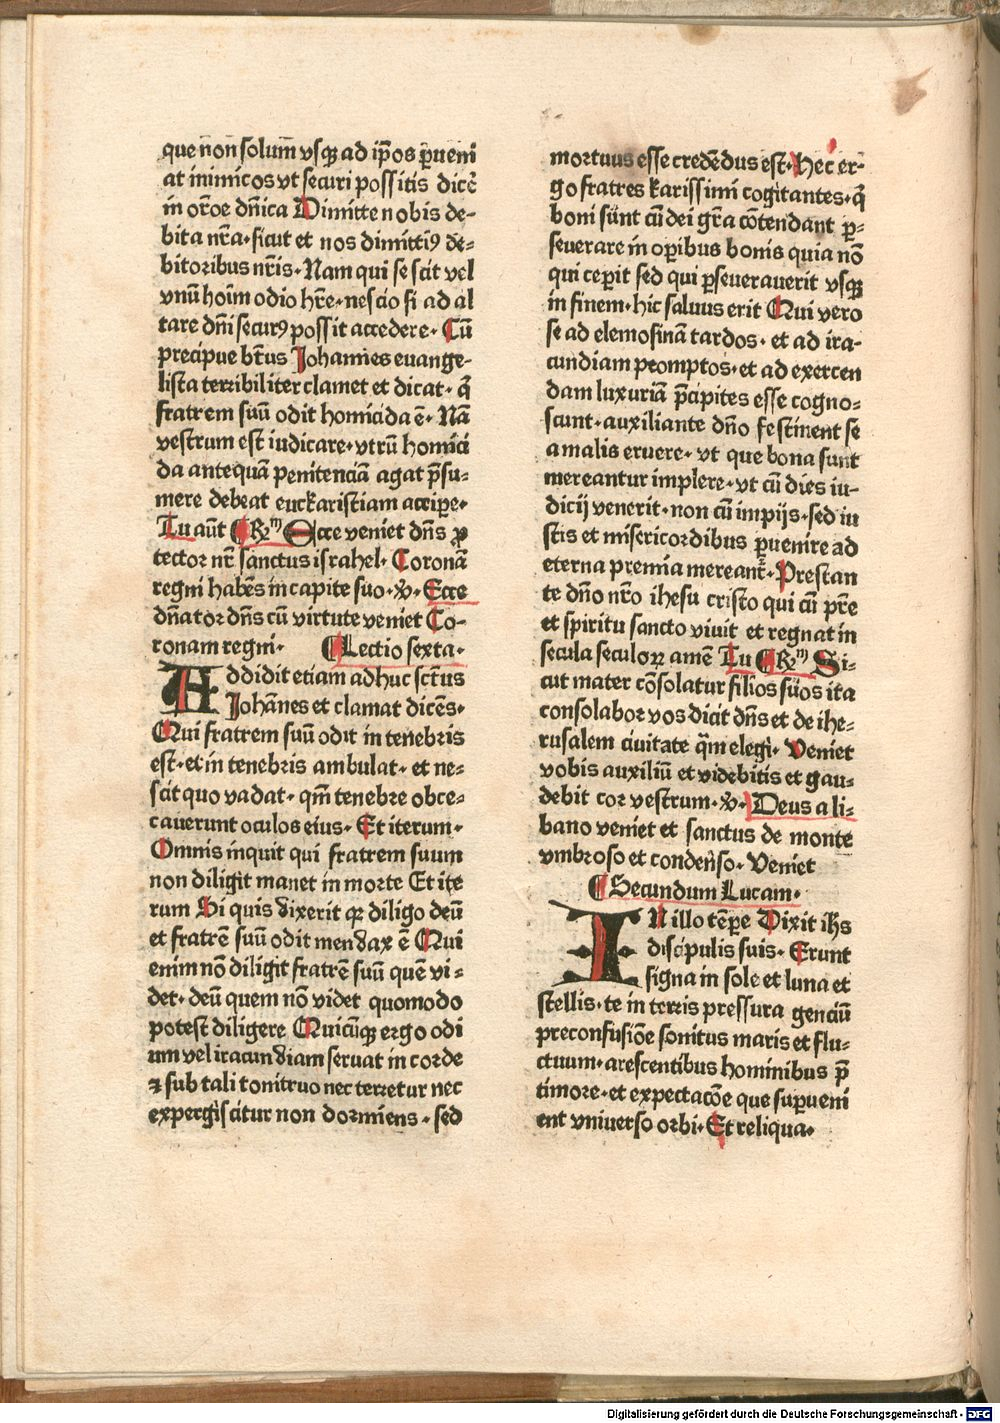 que nō̄n solum̄ vsqꝫ ad ip̄os ꝑueni
at inimicos vt securi possitis dicē
in or̄oe dn̄ica Dimitte nobis de-
bita nr̄a·sicut et nos dimittiꝰ de-
bitoribus nr̄is·Nam qui se scit vel
vnū hoīm odio hr̄e·nescio si ad al
tare dn̄i securꝰ possit accedere· Cū
precipue bt̄us Johannes euange-
lista terribiliter clamet et dicat· qͥ
fratrem suū odit homicida ē· Nā
vestrum est iudicare·vtrū homici
da antequā penitenciā agat p̄su-
mere debeat euckaristiam accipe·
Tu aūt ⸿ Rꝫm Ecce veniet dn̄s ꝓ
tector nr̄ sanctus israhel· Coronā
regni habēs in capite suo·℣· Ecce
dn̄ator dn̄s cū virtute veniet Co-
ronam regni· ⸿ Lectio sexta·
Addidit etiam adhuc sct̄us
Johānes et clamat dicēs·
Qui fratrem suū odit in tenebris
est·et in tenebris ambulat· et ne-
scit quo vadat· qm̄ tenebre obce-
cauerunt oculos eius· Et iterum·
Omnis inquit qui fratrem suum
non diligit manet in morte Et ite
rum Si quis dixerit qꝛ diligo deū
et fratrē suū odit mendax ē Qui
enim nō diligit fratrē suū quē vi-
det· deū quem nō videt quomodo
potest diligere Quicūqꝫ ergo odi
um vel iracundiam seruat in corde
⁊ sub tali tonitruo nec terretur nec
expergiscitur non dormiens· sed
mortuus esse credēdus est· Hec er-
go fratres karissimi cogitantes·qͥ
boni sūnt cū dei gr̄a cōtendant ꝑ-
seuerare in oꝑibus bonis quia nō
qui ceꝑit sed qui ꝑseuerauerit vsqꝫ
in finem·hic saluus erit Qui vero
se ad elemosinā tardos· et ad ira-
cundiam promptos·et ad exercen
dam luxuriā p̄cipites esse cogno-
scunt·auxiliante dn̄o festinent se
a malis eruere· vt que bona sunt
mereantur implere·vt cū dies iu-
dicij venerit·non cū impijs·sed iu
stis et misericordibus ꝑuenire ad
eterna premia mereant᷑· Prestan
te dn̄o nr̄o ihesu cristo qui cū pr̄e
et spiritu sancto viuit et regnat in
secula seculoꝝ amē Tu ⸿ Rꝫm Si-
cut mater cōsolatur filios suos ita
consolabor vos dicit dn̄s et de ihe-
rusalem ciuitate qͣm elegi· Veniet
vobis auxiliū et videbitis et gau-
debit cor vestrum·℣· Deus a li-
bano veniet et sanctus de monte
vmbroso et condenso· Veniet
⸿ Secundum Lucam·
IN illo tēꝑe Dixit ihs̄
discipulis suis· Erunt
signa in sole et luna et
stellis·te in terris pressura genciū
preconfusiōe sonitus maris et flu-
ctuum·arescentibus hominibus p̄
timore·et expectacōe que suꝑueni
ent vniuerso orbi· Et reliqua·
Digitalisierung gefördert durch die Deutsche Forschungsgemeinschaft - DFG